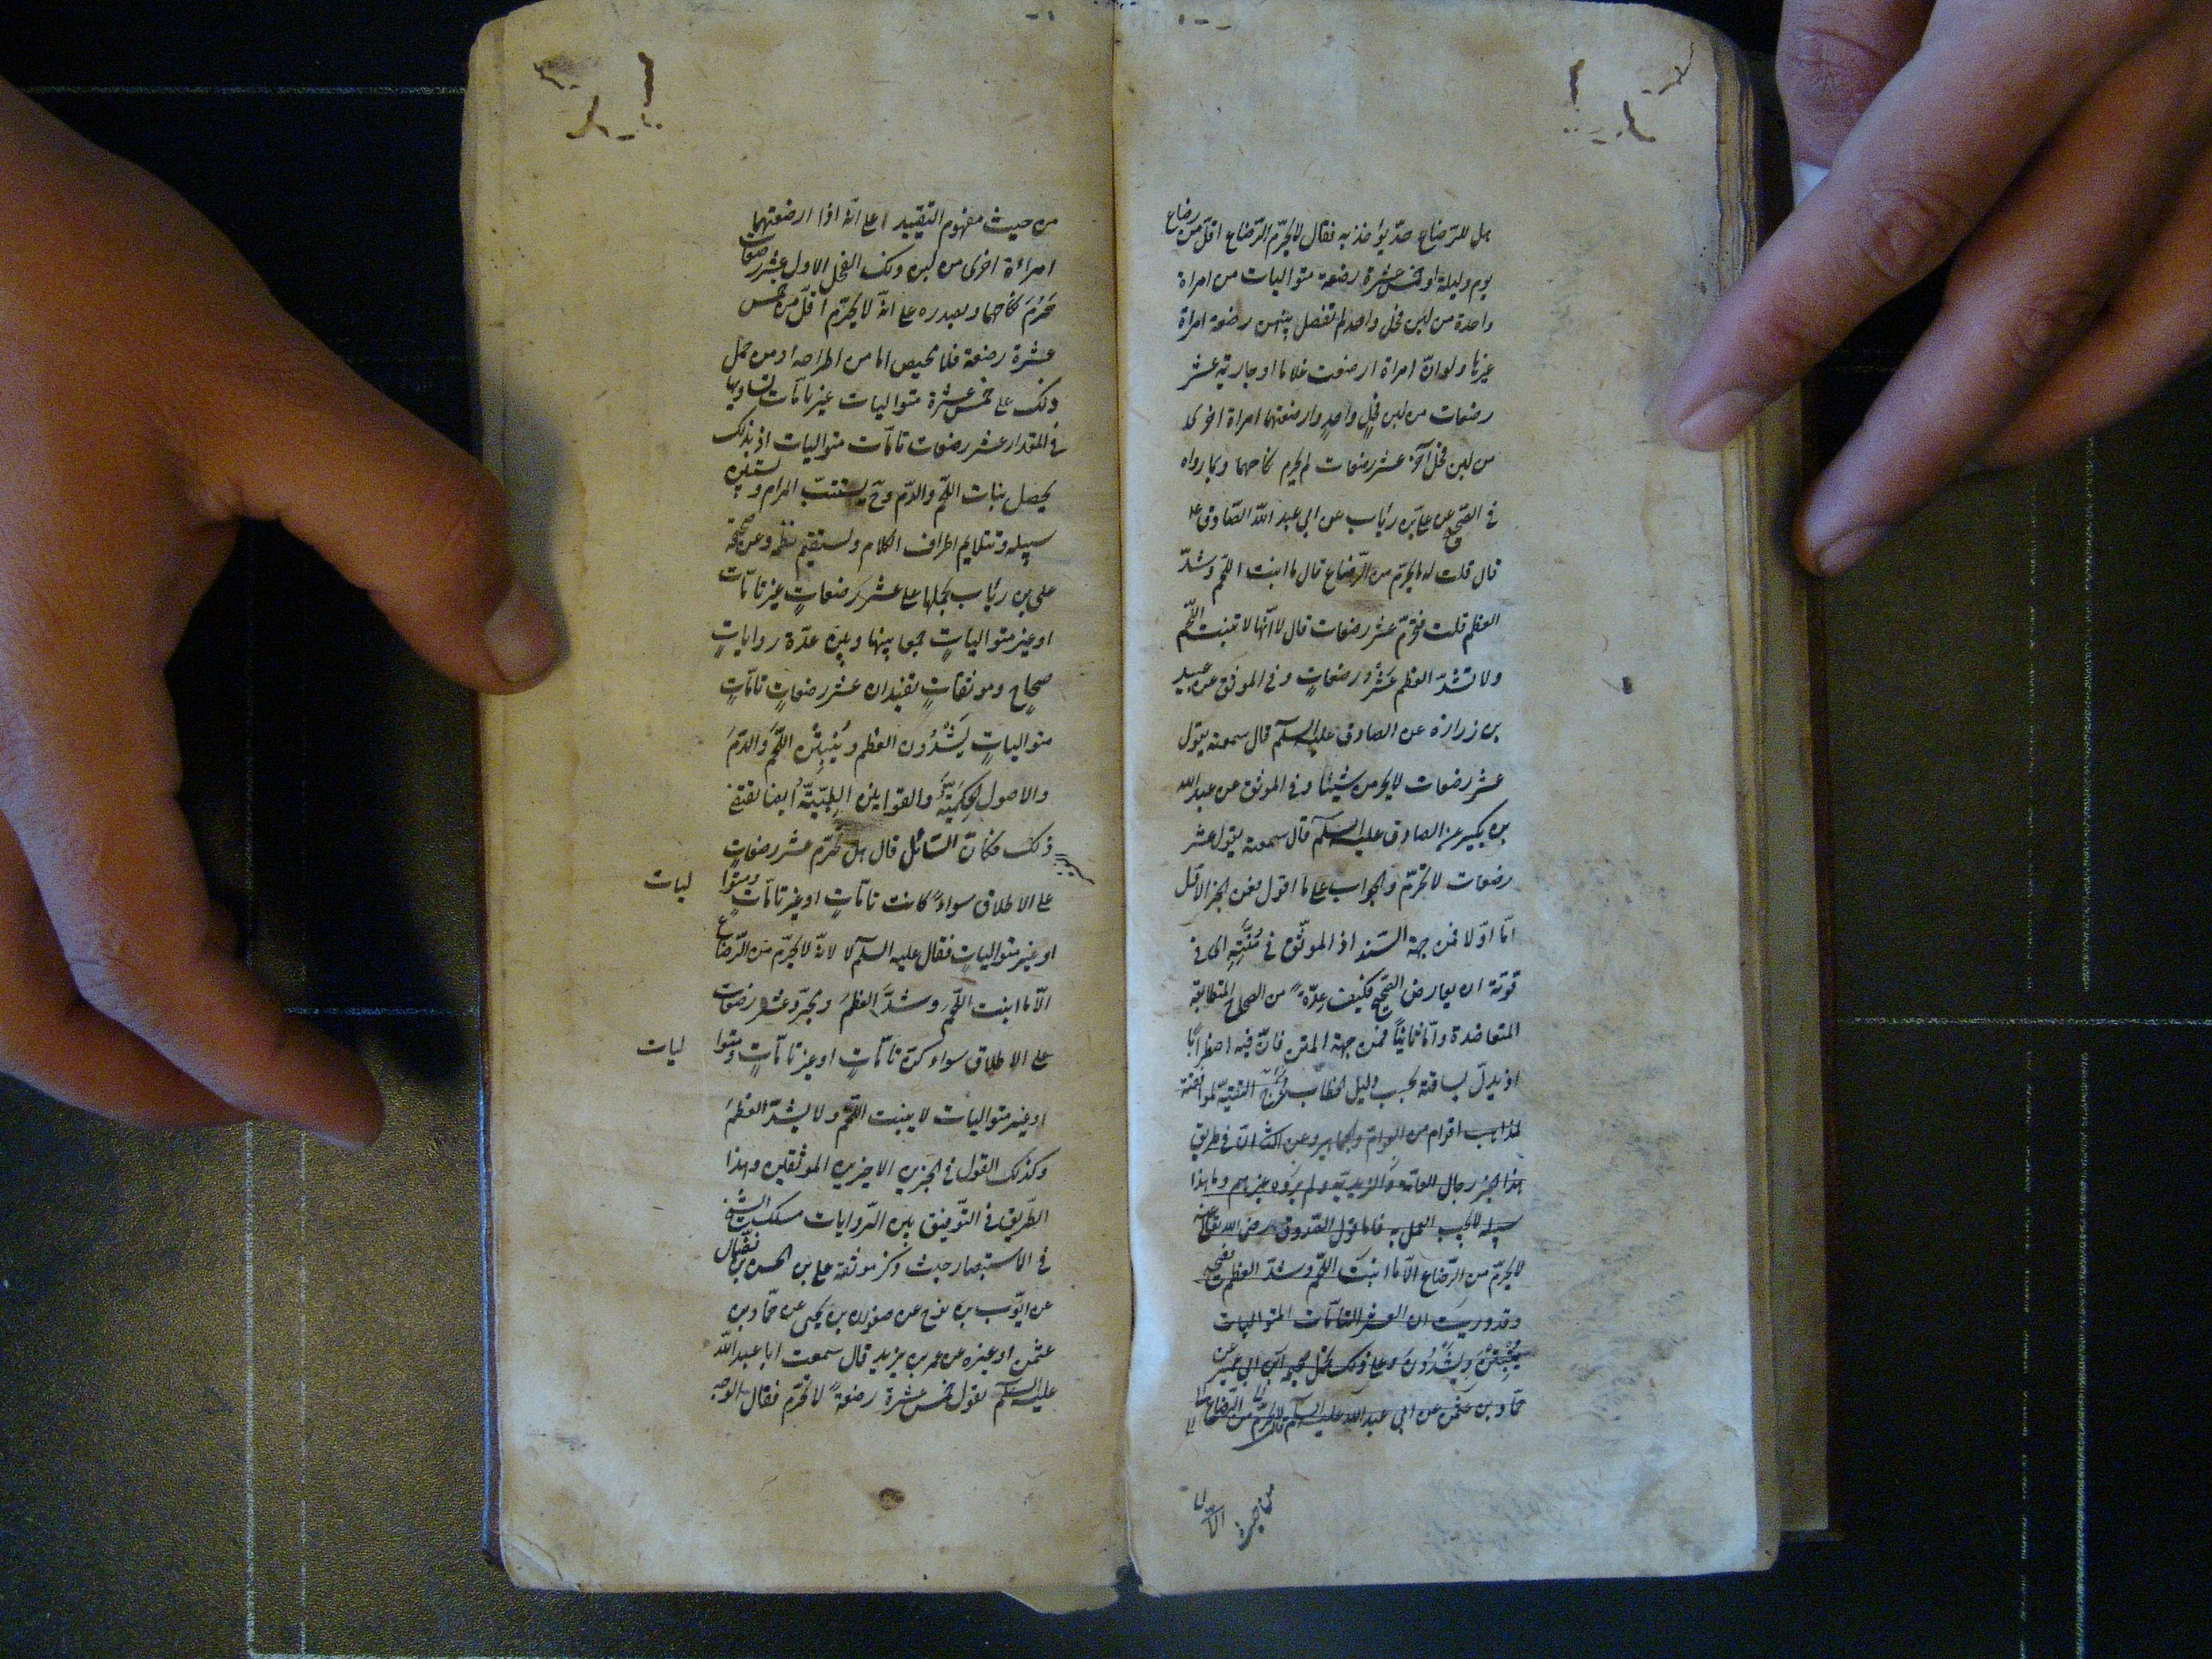 هل للرّضاع حدّ يؤخذ به فقال لا يحرّم الرّضاع اقلّ من رضاع
يوم وليلة او خمس عشرة رضعة متواليات من امراة
واحدة من لبن فحل واحد لم تفصل بينهن رضعة امراة
غيرها ولو انّ امراة ارضعت غلاما او جارية عشر
رضعات من لبن فحلٍ واحدٍ وارضعتهما امراة اخرى
من لبن فحل آخر عشر رضعات لم يحرم نكاحهما وبما رواه
في الصّحيح عن علي بن رئاب عن ابي عبد الله الصّادق ع
قال قلت له ما يحرّم من الرّضاع قال ما انبت اللحم وشدّ
العظم قلت فيحرّم عشر رضعات قال لا انّها لا تنبت اللحم
ولا تشدّ العظم عَشْرُ رضعاتٍ وفي الموثق عن عبيد
بن زرارة عن الصادق عليه السلم قال سمعته يقول
عشر رضعات لا يحرمن شيئا وفي الموثق عن عبد الله
بن بكير عن الصادق عليه السلم قال سمعته يقول عشر
رضعات لا تحرّم والجواب على ما اقول فعن الخبر الاوّل
امّا اوّلا فمن جهة السّند اذ الموثّق في مُنَّتِهِ
قوته ان يعارض الصّحيح فكيف عِدّةً من الصحاح المتطابقة
المتعاضدة وامّا ثانيًا فمن جهة المتن فانّ فيه اضطرابًا
اذ يدلّ بساقته بحسب دليل الخطاب التقيّة لموافقته
لمذاهب اقوام من العوامّ والجماهير وعن انّ في طريق
هذا الخبر رجال العامّة والزيديّة ولم يروه غيرهم وما هذا
سبيله لا يجب العمل به فاما قول الصّدوق رضي الله تعالى عنه
لا يحرّم من الرّضاع الّا ما انبت اللحم وشدّ العظم
وقد دريت ان العشر التامّات المتواليات
يُنْبِتْنَ ويَشْدُدْنَ وعلى ذلك يحمل صحيح ابن ابي عمير عن
حمّاد بن عثمن عن ابي عبد الله عليه السلم قال لا يحرّم من الرّضاع الّا ما
من حيث مفهوم التقييد على انّه اذا ارضعتهما
امراءة اخرى من لبن ذلك الفحل الاول عشر رضعات
حَرُمَ نكاحهما وبصدره على انّه لا يحرّم اقلّ من خمس
عشرة رضعة فلا محيص اما من اطراحه او من حمل
ذلك على خمس عشرة متواليات غير تامّات تساويها
في المقدار عشر رضعات تامّات متواليات اذ بذلك
يحصل نبات اللحم والدّم وح يستتبّ المرام ويستبين
سبيله وتتلايم اطراف الكلام ويستقيم نظمه وعن صحيحة
علي بن رئاب بحملها على عشر رَضعاتٍ غير تامّات
او غير متوالياتٍ جمعا بينها وبين عدّة رواياتٍ
صحاح وموثقاتٍ تفيد ان عشر رضعاتٍ تامّاتٍ
متوالياتٍ يَشْدُدْن العظم ويُنْبِتْن اللحمَ والدّمَ
والاصول الحِكَمِيّة والقوانين الطِبّيّة ايضا تقتضي
ذلك فكانّ السّائل قال هل تحرّم عشر رضعاتٍ
على الاطلاق سواءً كانت تامّاتٍ او غير تامّاتٍ ومتوا ليات
او غير متوالياتٍ فقال عليه السلم لا لانّه لا يحرّم من الرّضاع
الّا ما انبت اللحم وشدّ العظمَ ومجرّد عشر رضعات
على الاطلاق سواء كنّ تامّاتٍ او غير تامّاتٍ ومتوا ليات
او غير متواليات لا ينبت اللحمَ ولا يشدّ العظمَ
وكذلك القول في الخبرين الاخيرين الموثقين وهذا
الطّريق في التّوفيق بين الرّوايات مسلك الشيخ
في الاستبصار حيث ذكر موثقة علي بن الحسن بن فضّال
عن ايّوب بن نوح عن صفوان بن يحيى عن حمّاد بن
عثمن او غيره عن عمر بن يزيد قال سمعت ابا عبد الله
عليه السلم يقول خمس عشرة رضعةً لا تحرّم فقال الوجه